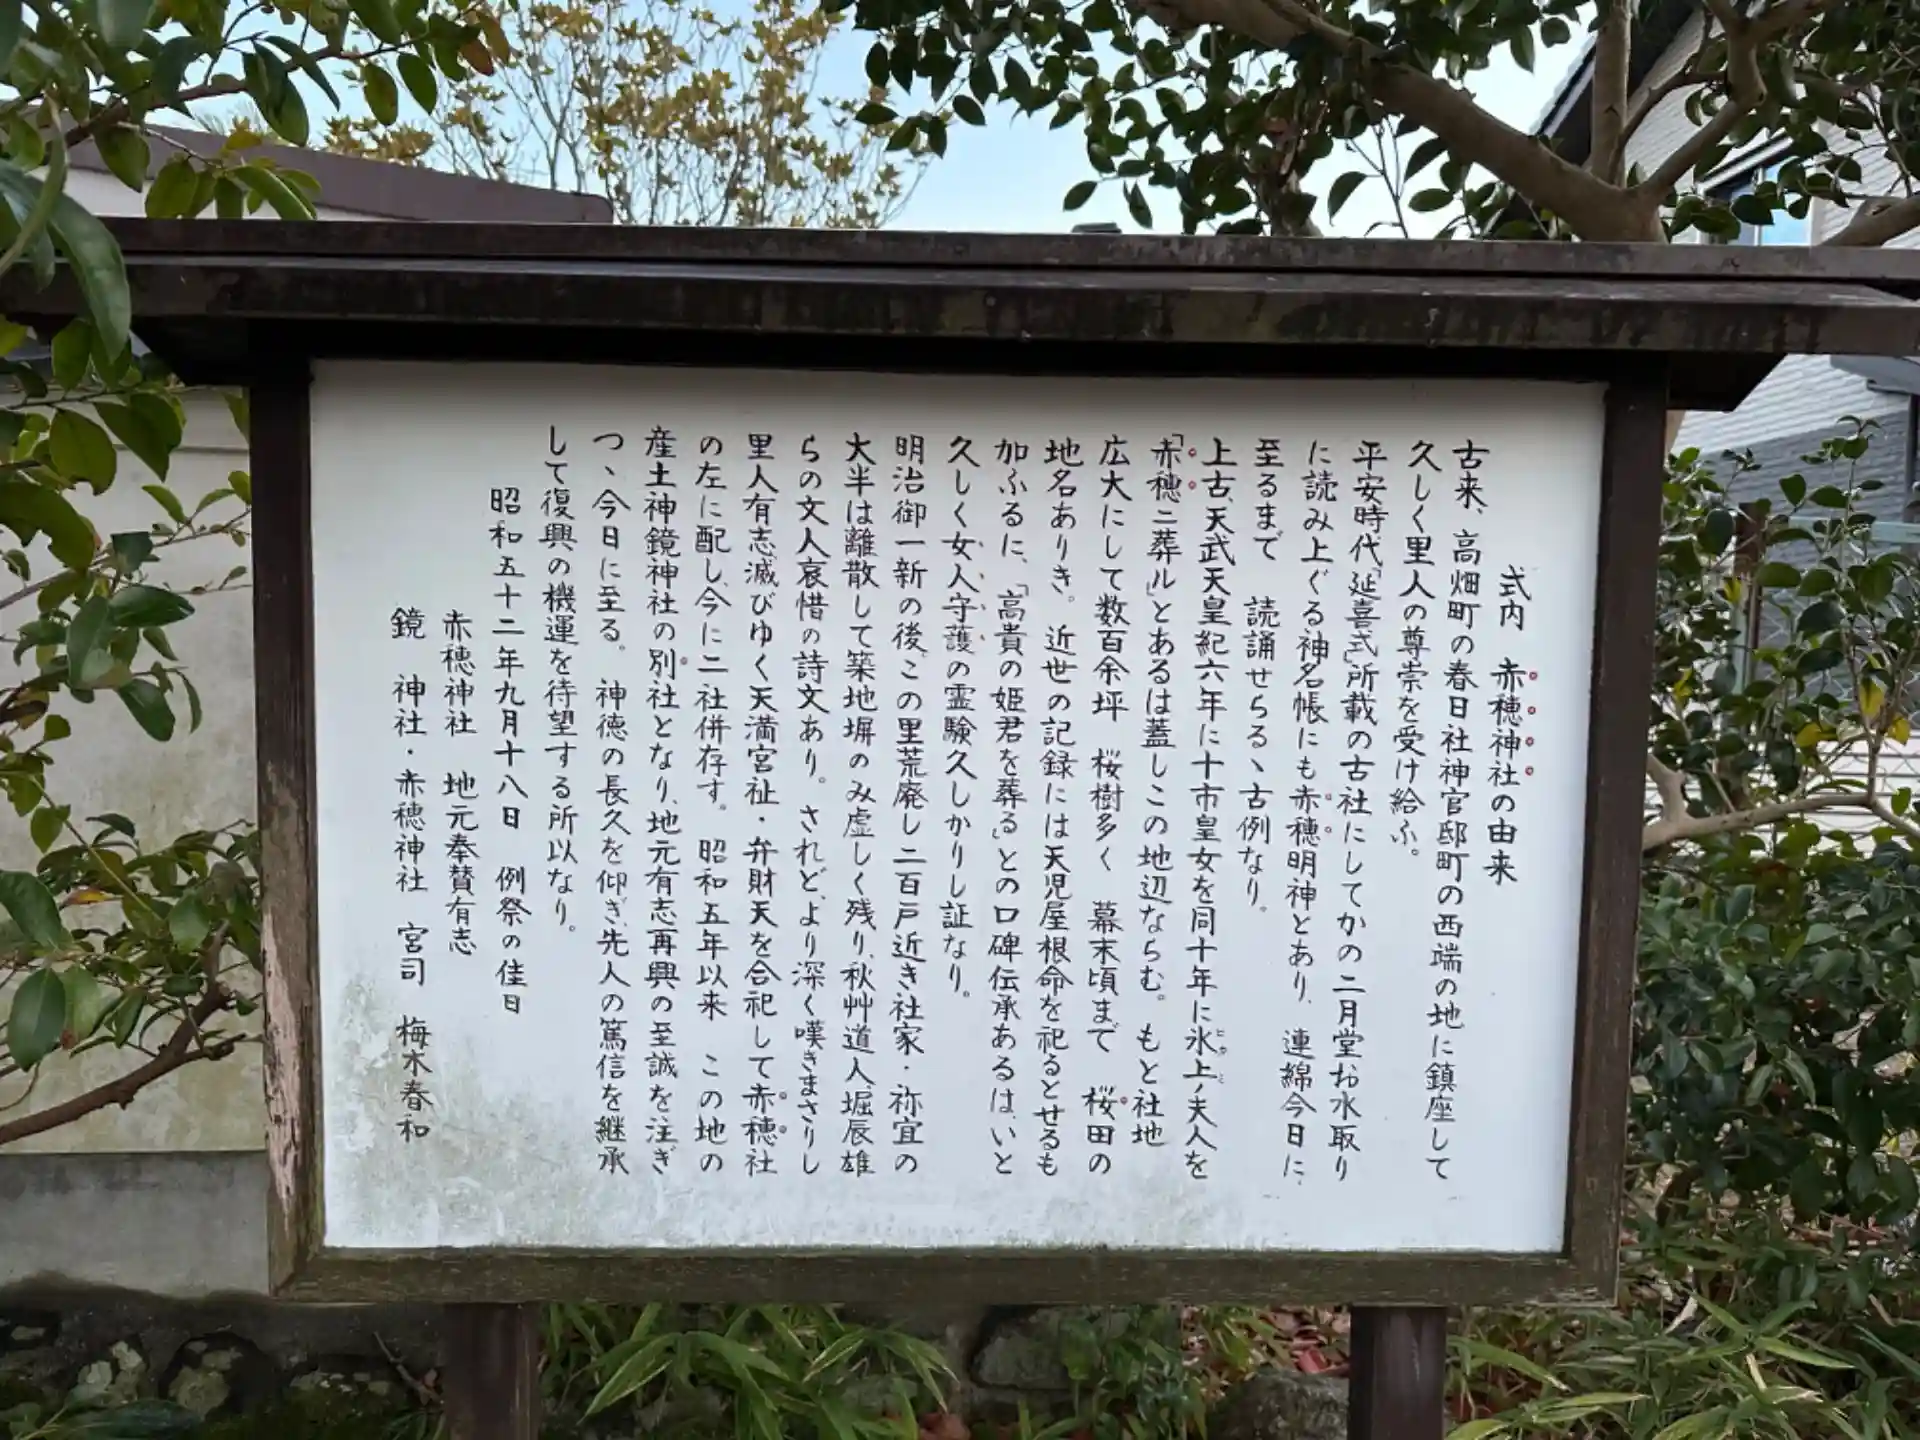 式内　赤穂神社の由来
古来、高畑町の春日社神官邸町の西端の地に鎮座して
久しく里人の尊崇を受け給ふ。
平安時代「延喜式」所載の古社にしてかの二月堂お水取り
に読み上ぐる神名帳にも赤穂明神とあり、連綿今日に、
至るまで　読誦せらるヽ古例なり。
上古、天武天皇紀六年に十市皇女を同十年に氷上ノ夫人を
「赤穂ニ葬ル」とあるは蓋しこの地辺ならむ。もと社地
広大にして数百余坪　桜樹多く　幕末頃まで　桜田の
地名ありき。近世の記録には天児屋根命を祀るとせるも
加ふるに、「高貴の姫君を葬る」との口碑伝承あるは、いと
久しく女人守護の霊験久しかりし証なり。
明治御一新の後、この里荒廃し二百戸近き社家・祢宜の
大半は離散して築地塀のみ虚しく残り、秋艸道人堀辰雄
らの文人哀惜の詩文あり。されど、より深く嘆きまさりし
里人有志滅びゆく天満宮祉・弁財天を合祀して赤穂社
の左に配し、今に二社併存す。昭和五年以来　この地の
産土神鏡神社の別社となり、地元有志再興の至誠を注ぎ
つヽ今日に至る。神徳の長久を仰ぎ、先人の篤信を継承
して復興の機運を待望する所以なり。
昭和五十二年九月十八日　例祭の佳日
赤穂神社　地元奉賛有志
鏡　神社・赤穂神社　宮司　梅木春和